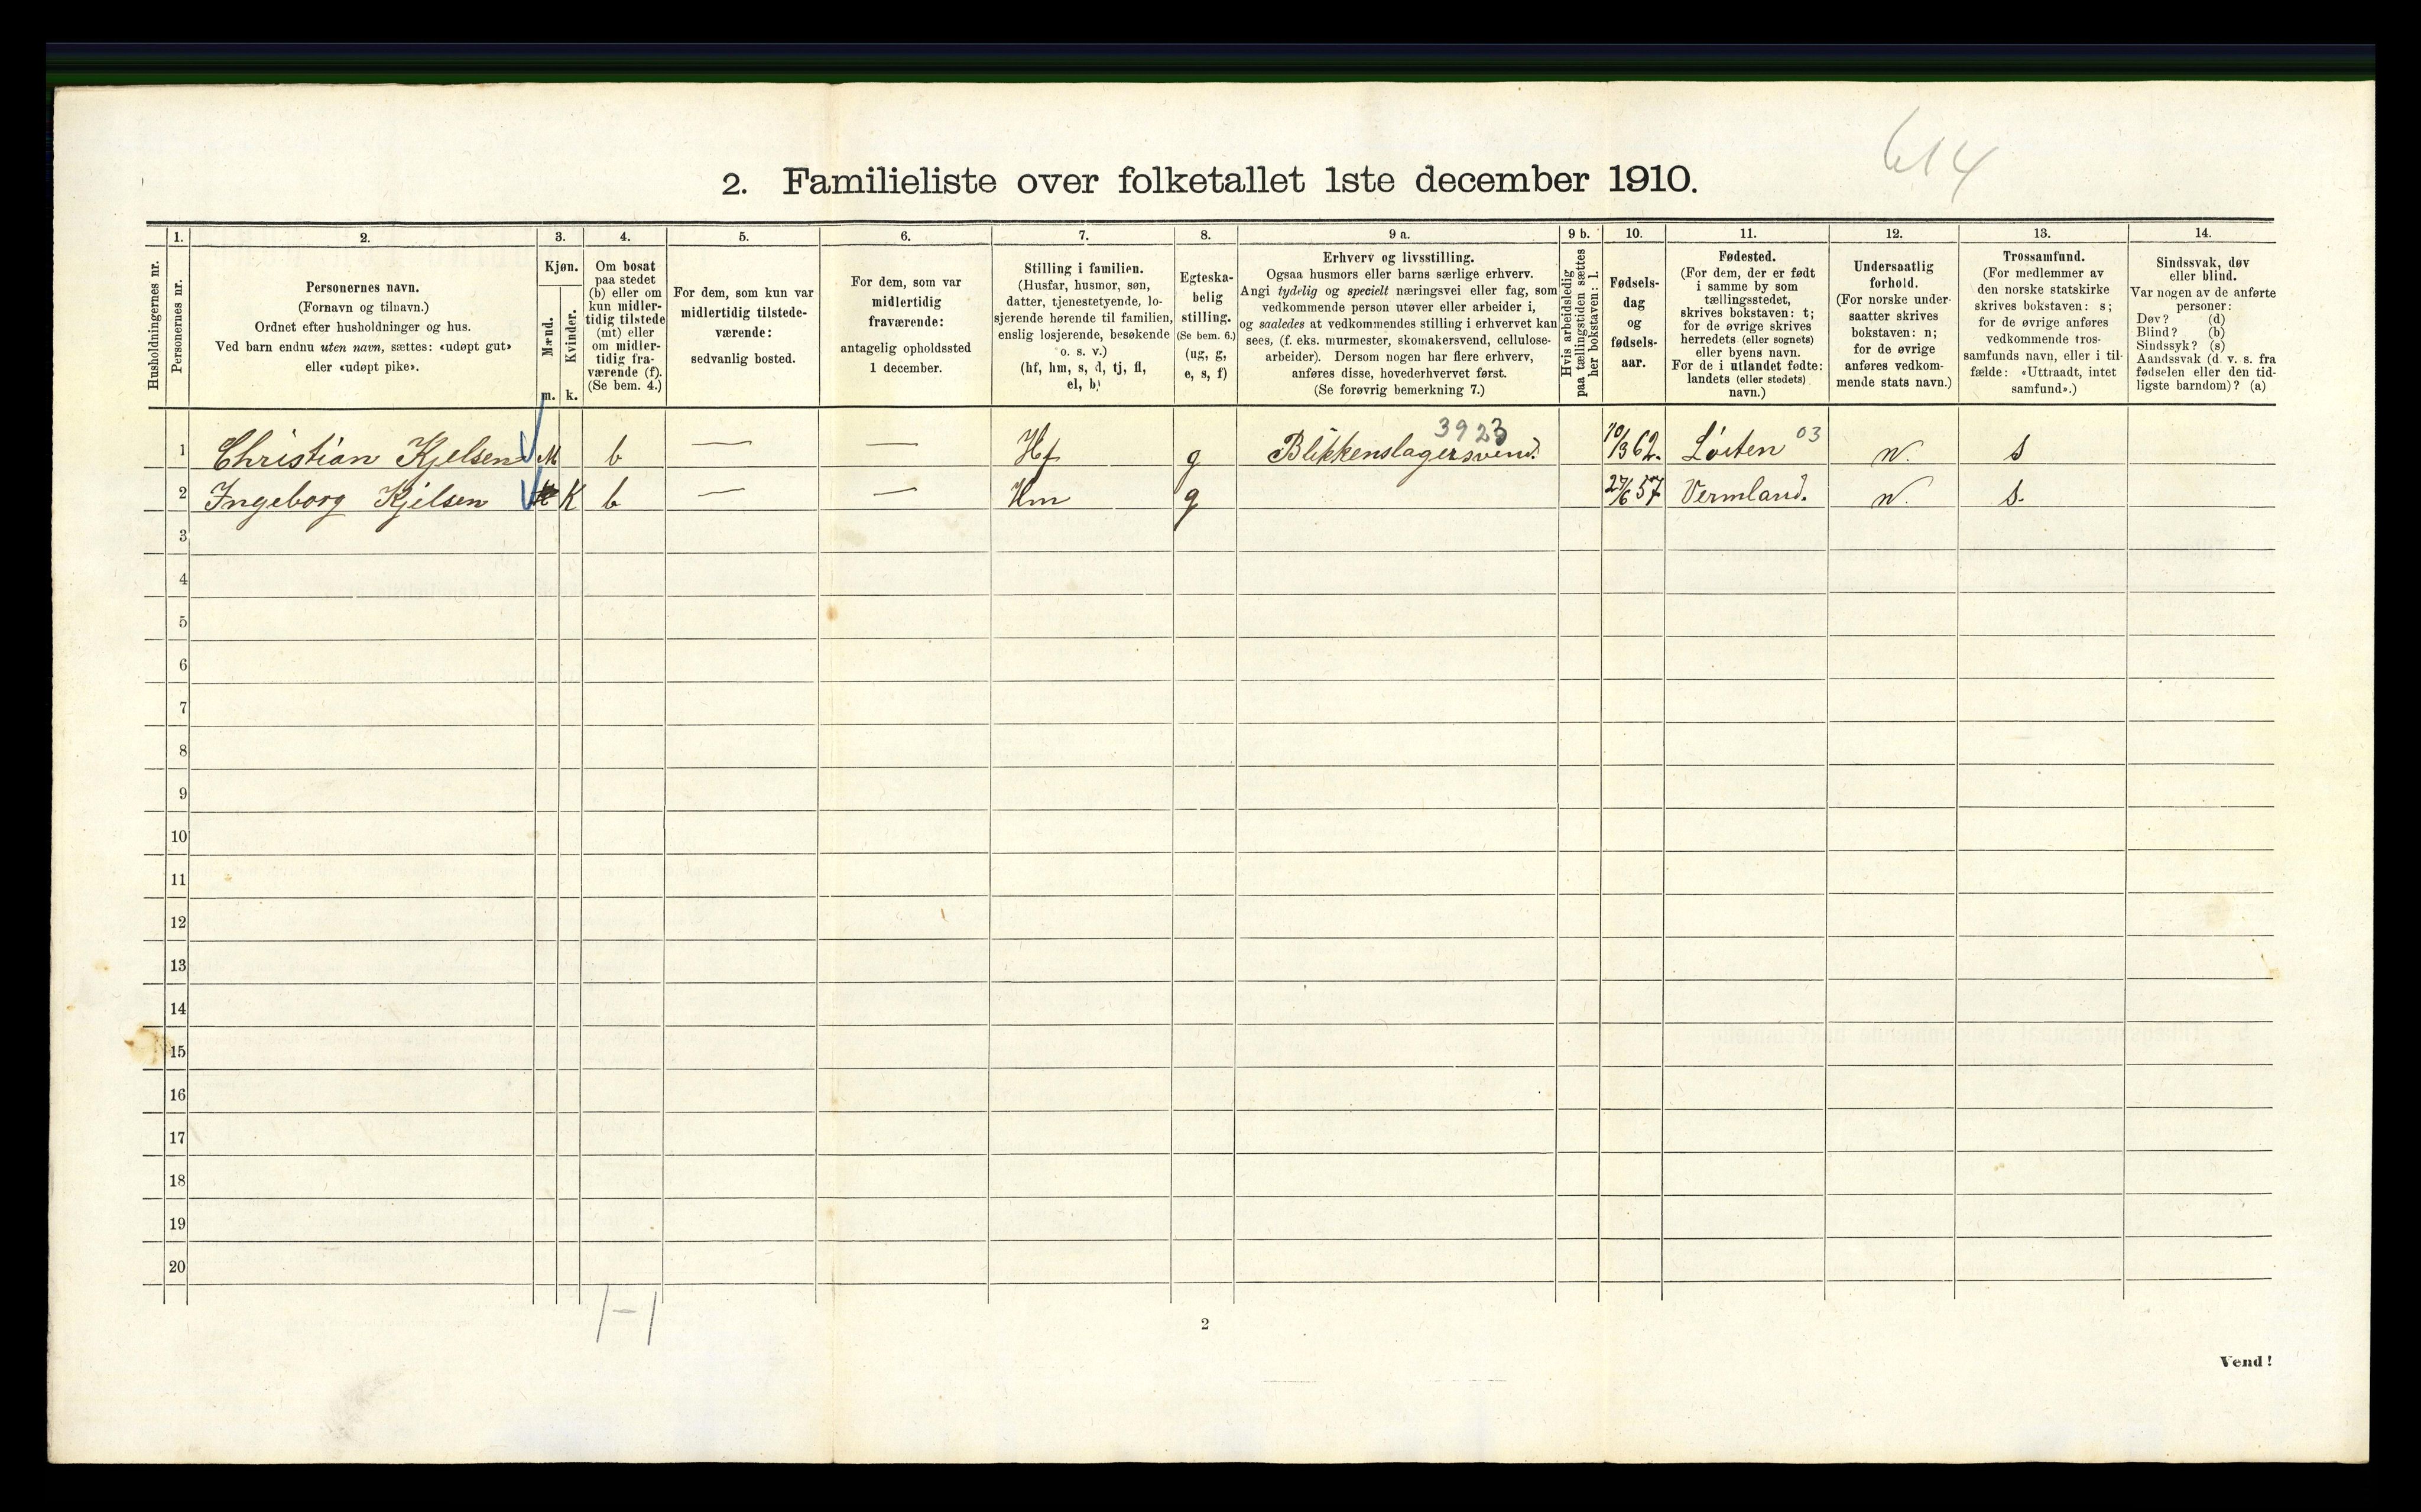 614
2. Familieliste over folketallet 1ste december 1910.
1. 2. 3. 4. 5. 6. 7. 8. 9 a. 9 b. 10. 11. 12. 13. 14.
Husholdningernes nr.
Personernes nr.
Personernes navn.
(Fornavn og tilnavn.)
Ordnet efter husholdninger og hus.
Ved barn endnu uten navn, sættes: «udøpt gut»
eller «udøpt pike».
Kjøn.
Mænd.
Kvinder.
m. k.
Om bosat
paa stedet
(b) eller om
kun midler-
tidig tilstede
(mt) eller
om midler-
tidig fra-
værende (f).
(Se bem. 4.)
For dem, som kun var
midlertidig tilstede-
værende:
sedvanlig bosted.
For dem, som var
midlertidig
fraværende:
antagelig opholdssted
1 december.
Stilling i familien.
(Husfar, husmor, søn,
datter, tjenestetyende, lo-
sjerende hørende til familien,
enslig losjerende, besøkende
o. s. v.)
(hf, hm, s, d, tj, fl,
el, b)
Egteska-
belig
stilling.
(Se bem. 6.)
(ug, g,
e, s, f)
Erhverv og livsstilling.
Ogsaa husmors eller barns særlige erhverv.
Angi tydelig og specielt næringsvei eller fag, som
vedkommende person utøver eller arbeider i,
og saaledes at vedkommendes stilling i erhvervet kan
sees, (f. eks. murmester, skomakersvend, cellulose-
arbeider). Dersom nogen har flere erhverv,
anføres disse, hovederhvervet først.
(Se forøvrig bemerkning 7.)
Hvis arbeidsledig
paa tællingstiden sættes
her bokstaven: l.
Fødsels-
dag
og
fødsels-
aar.
Fødested.
(For dem, der er født
i samme by som
tællingsstedet,
skrives bokstaven: t;
for de øvrige skrives
herredets (eller sognets)
eller byens navn.
For de i utlandet fødte:
landets (eller stedets)
navn.)
Undersaatlig
forhold.
(For norske under-
saatter skrives
bokstaven: n;
for de øvrige
anføres vedkom-
mende stats navn.)
Trossamfund.
(For medlemmer av
den norske statskirke
skrives bokstaven: s;
for de øvrige anføres
vedkommende tros-
samfunds navn, eller i til-
fælde: «Uttraadt, intet
samfund».)
Sindssvak, døv
eller blind.
Var nogen av de anførte
personer:
Døv? (d)
Blind? (b)
Sindssyk? (s)
Aandssvak (d. v. s. fra
fødselen eller den tid-
ligste barndom)? (a)
3923 03
1 Christian Kjelsen M b — — Hf g Blikkenslagersvend. 10/3 62. Löiten n. s
2 Ingeborg Kjelsen K b — — Hm g 27/6 57 Vermland. n. s.
3
4
5
6
7
8
9
10
11
12
13
14
15
16
17
18
19
20
1-1
2
Vend!